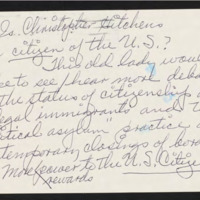 Is Christopher Hitchens
a citizen of the U.S.?
This old lady would
to see/hear more deba
the status of citizenship a
egal immigrants and t
itical asylum" practice
temporary closings of bord
More power to the U.S. Citize
rewards